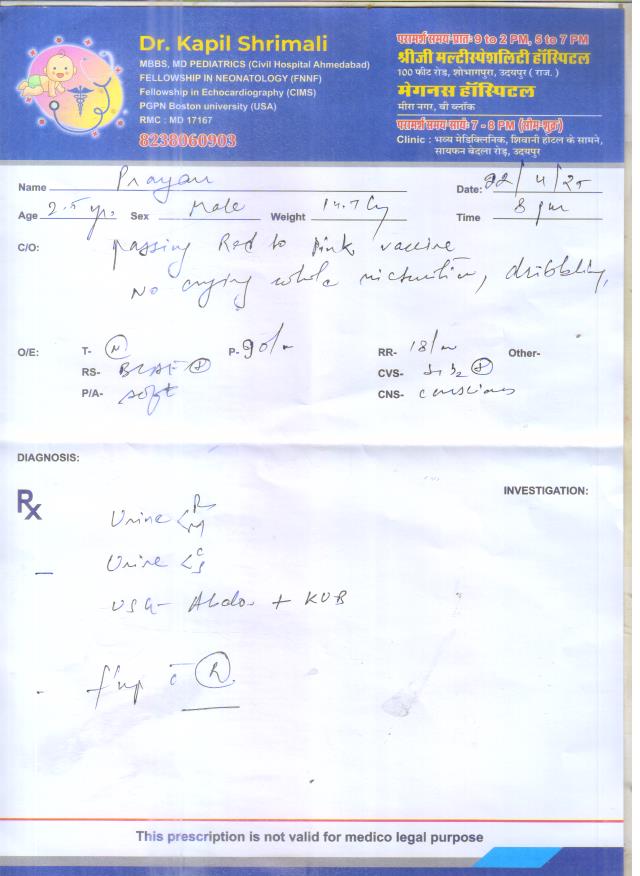 Dr. Kapil Shrimali
MBBS, MD PEDIATRICS (Civil Hospital Ahmedabad)
FELLOWSHIP IN NEONATOLOGY (FNNF)
Fellowship in Echocardiography (CIMS)
PGPN Boston university (USA)
RMC : MD 17167
8238060903
परामर्श समय-प्रातः 9 to 2 PM, 5 to 7 PM
श्रीजी मल्टीस्पेशलिटी हॉस्पिटल
100 फीट रोड, शोभागपुरा, उदयपुर ( राज. )
मेगनस हॉस्पिटल
मीरा नगर, बी ब्लॉक
परामर्श समय-सायं 7 - 8 PM (सोम-शुक्र)
Clinic : भव्य मेडिक्लिनिक, शिवानी होटल के सामने,
सायफन बेदला रोड़, उदयपुर
Name Prayan Date: 22/4/25
Age 2.5 yr. Sex Male Weight 14.7 kg Time 8 pm
C/O: passing Red to Pink
No crying while micturition, dribbling,
O/E: T- N P- 90/m RR- 18/m Other-
RS- CVS- S1S2
P/A- soft CNS- conscious
DIAGNOSIS:
Rx INVESTIGATION:
Urine < R M
- Urine < C S
USG- Abdo. + KUB
- f'up c̄ R
This prescription is not valid for medico legal purpose